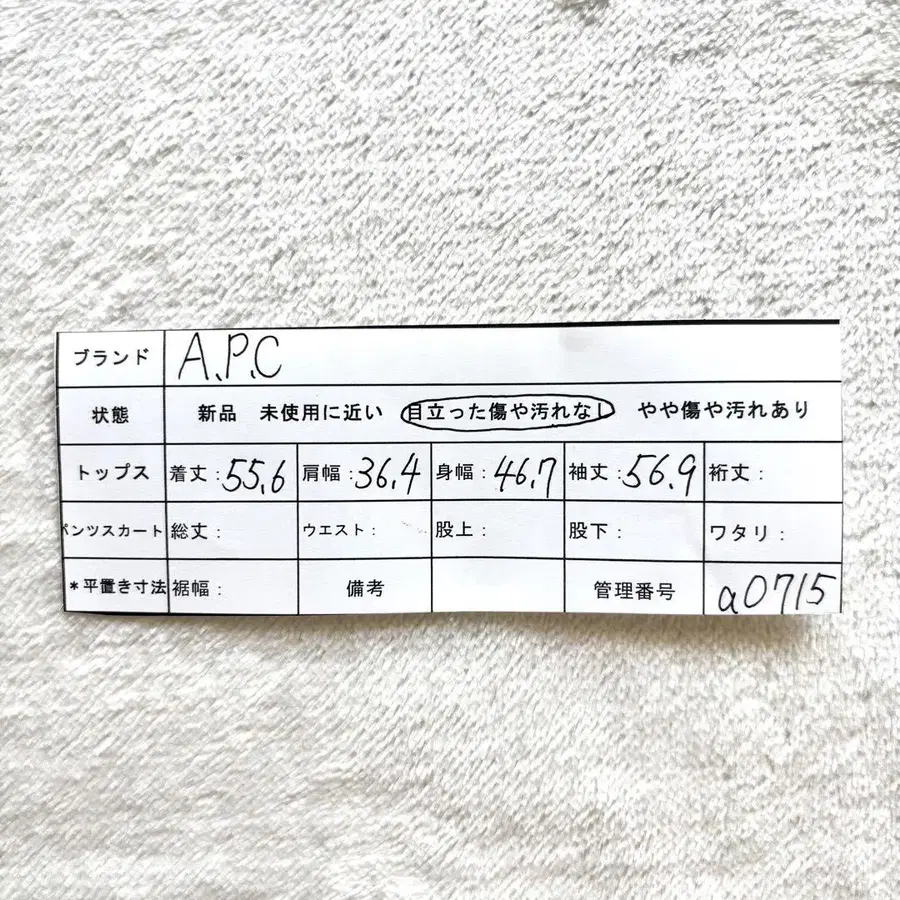 ブランド A.P.C
状態 新品 未使用に近い 目立った傷や汚れなし やや傷や汚れあり
トップス 着丈:55.6 肩幅:36.4 身幅:46.7 袖丈:56.9 裄丈:
パンツスカート 総丈: ウエスト: 股上: 股下: ワタリ:
*平置き寸法 裾幅: 備考 管理番号 a0715